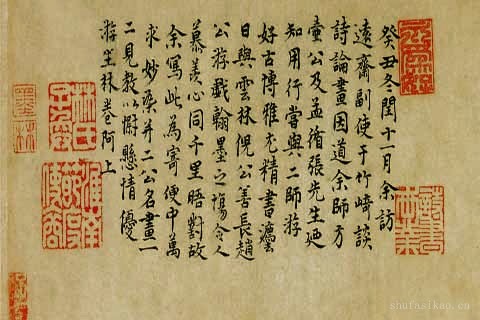 癸丑冬閏十一月余訪
遠齋副使于竹崎談
詩論畫因道余師方
壺公及孟循張先生廼
知用行嘗與二師游
好古博雅尤精書灋
日與雲林倪公善長趙
公游戲翰墨之場令人
慕羨心同千里晤對故
余寫此為寄便中萬
求妙染并二公名畫一
二見教以慰懸情優
游林卷阿上